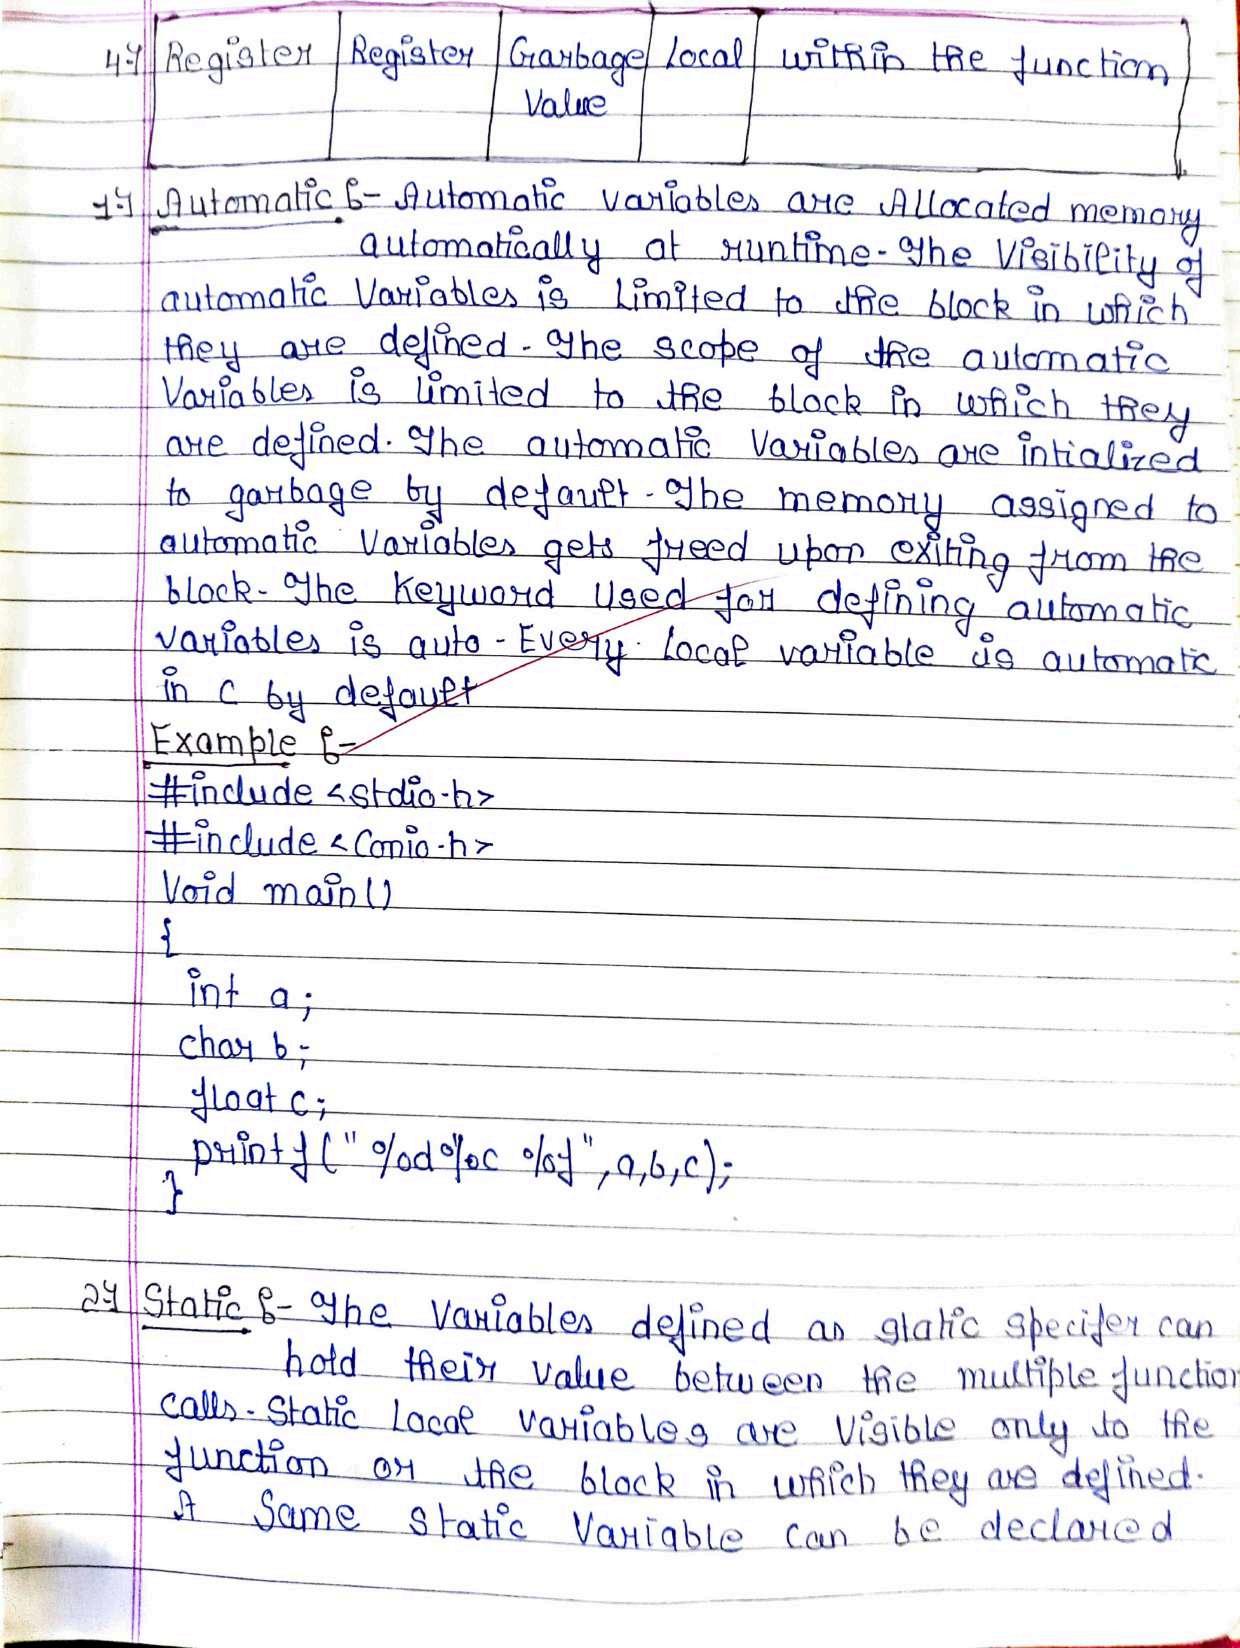 4) Register Register Garbage Local within the function
Value
1) Automatic :- Automatic variables are Allocated memory
automatically at runtime. The Visibility of
automatic Variables is limited to the block in which
they are defined. The scope of the automatic
Variables is limited to the block in which they
are defined. The automatic Variables are intialized
to garbage by default. The memory assigned to
automatic Variables gets freed upon exiting from the
block. The Keyword Used for defining automatic
variables is auto. Every local variable is automatic
in C by default
Example :-
#include <stdio.h>
#include <Conio.h>
Void main()
{
int a;
char b;
float c;
printf(" %d %c %f", a,b,c);
}
2) Static :- The Variables defined as static specifer can
hold their value between the multiple function
calls. Static Local variables are Visible only to the
function or the block in which they are defined.
A Same Static Variable can be declared